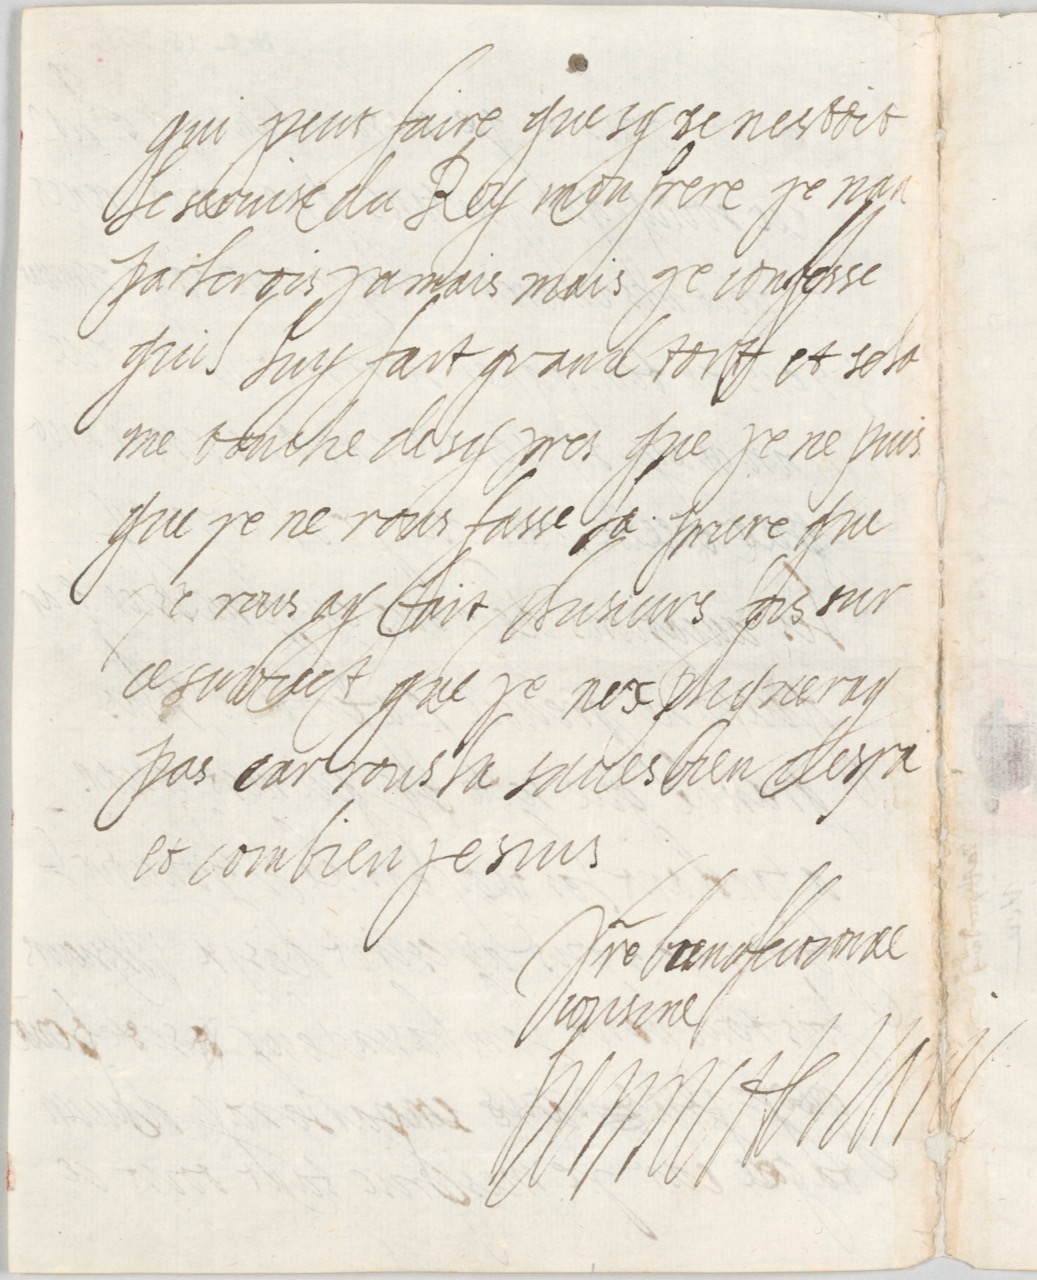 qui peut faire que sy se nestoit
le seruise du Roy mon frere je nan
parlerois jamais mais je confesse
quil luy fait grand tort et sela
me touche desy pres que je ne puis
que je ne vous fasse la priere que
je vous ay fait plusieurs fois sur
ce subiect que je nexpliqueray
pas car vous la saves bien desja
et combien je suis
Vre bien affectionnee
cousine